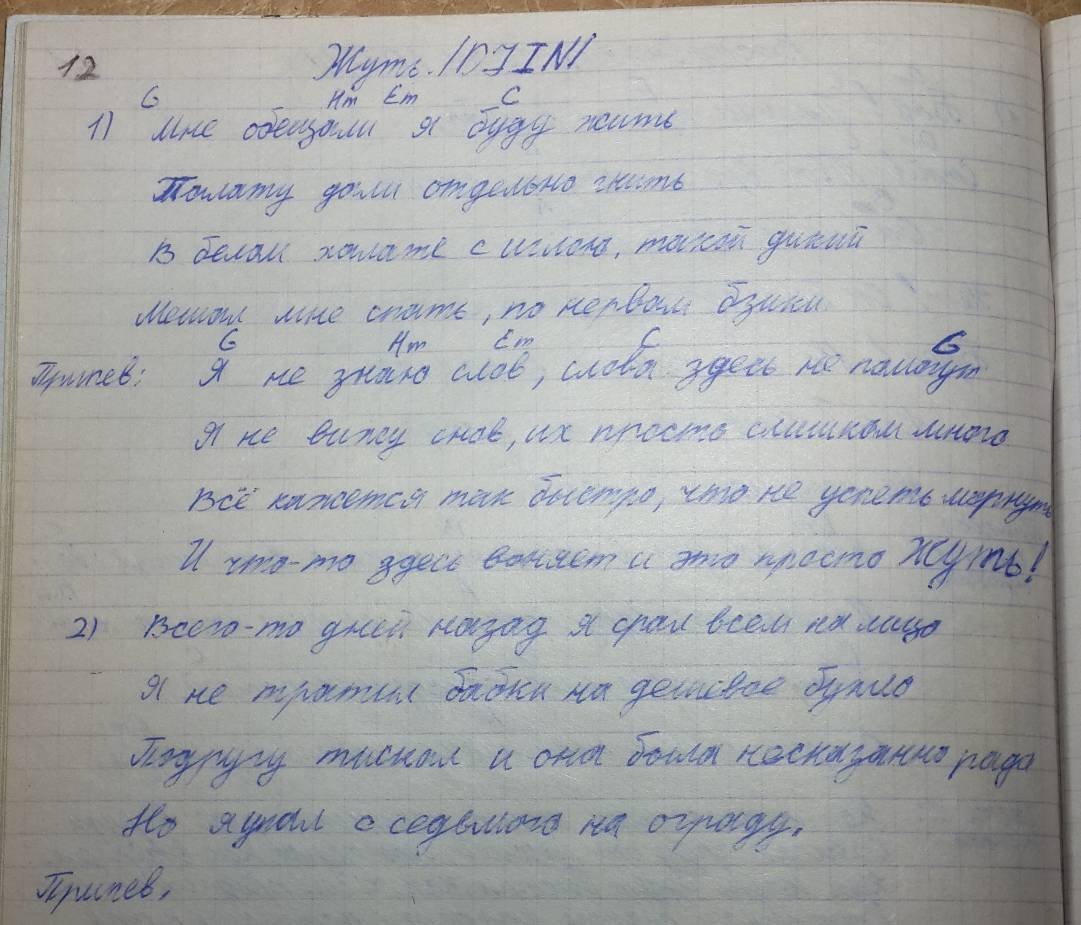 12
Жуть. /DJIN/
G Hm Em C
1) Мне обещали я буду жить
Палату дали отдельно гнить
В белом халате с иглою, такой дикий
Мешал мне спать, по нервам бзики
G Hm Em C G
Припев: Я не знаю слов, слова здесь не помогут
Я не вижу снов, их просто слишком много
Всё кажется так быстро, что не успеть моргнуть
И что-то здесь воняет и это просто Жуть!
2) Всего-то дней назад я срал всем на лицо
Я не тратил бабки на дешевое бухло
Подругу тискал и она была несказанно рада
Но я упал с седьмого на ограду.
Припев.